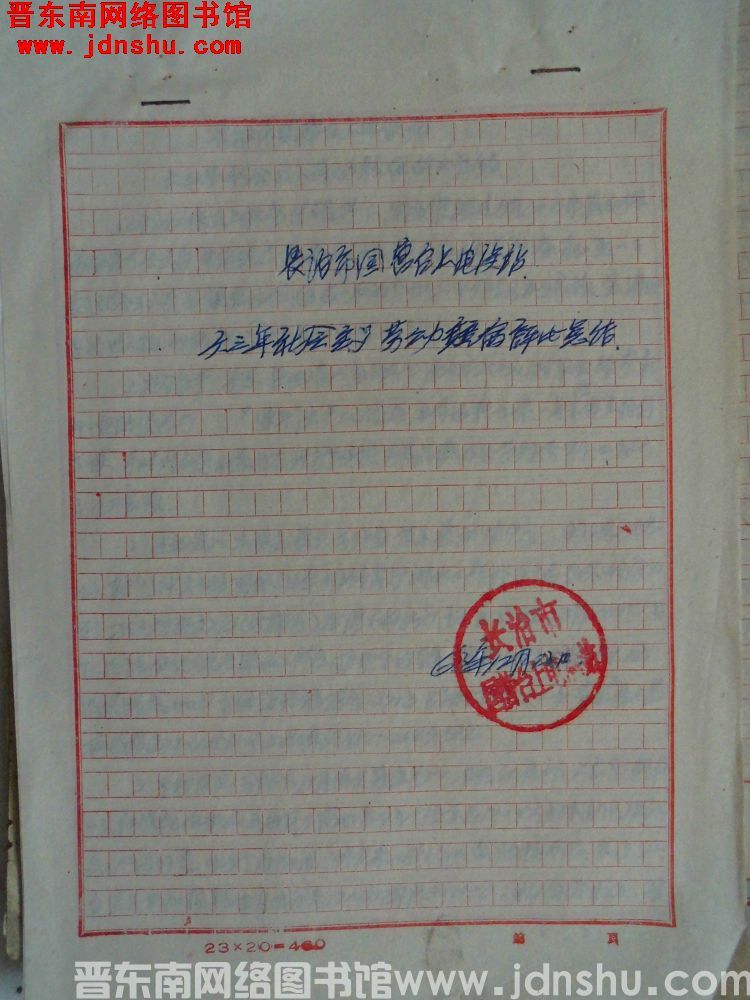 晋东南网络图书馆
www.jdnshu.com
长治市国营台上电灌站
六三年社会主义劳动竞赛评比总结.
长治市
国营台上电灌站
63年12月23日
23×20=460
第 页
晋东南网络图书馆www.jdnshu.com